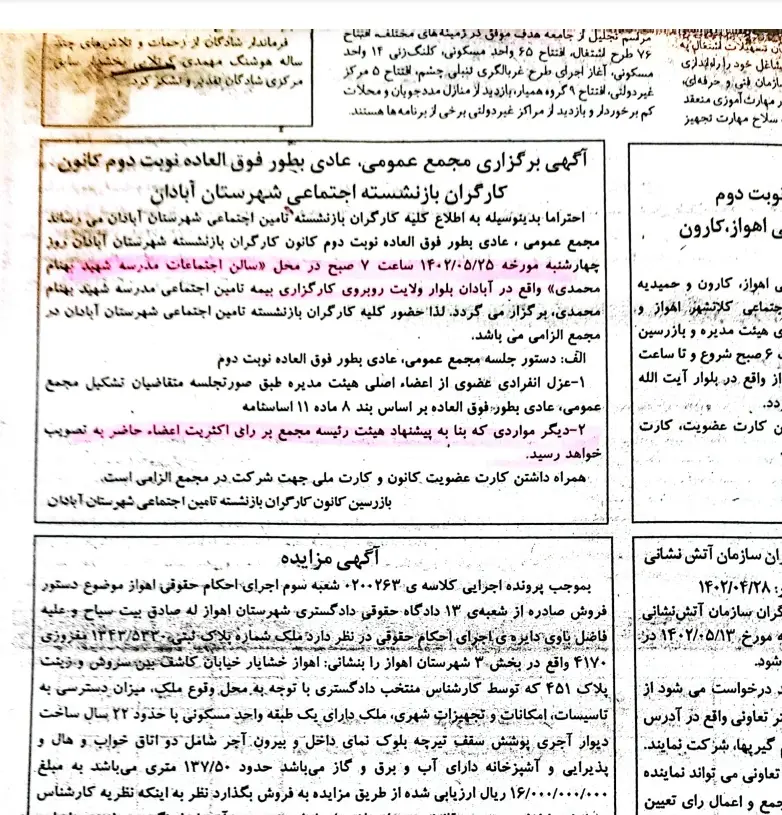 فرماندار شادگان از زحمات و تلاش‌های چند
ساله هوشنگ مهمدی کربلایی بخشدار سابق
مرکزی شادگان تقدیر و تشکر کرد.
مراسم تجلیل از جامعه هدف موفق در زمینه‌های مختلف، افتتاح
۷۶ طرح اشتغال، افتتاح ۶۵ واحد مسکونی، کلنگ‌زنی ۱۴ واحد
مسکونی، آغاز اجرای طرح غربالگری تنبلی چشم، افتتاح ۵ مرکز
غیردولتی، افتتاح ۹ گروه همیار، بازدید از منازل مددجویان و محلات
کم برخوردار و بازدید از مراکز غیردولتی برخی از برنامه‌ها هستند.
تسهیلات اشتغال به
شاغل خود را راه‌اندازی
سازمان فنی و حرفه‌ای،
مهارت آموزی منعقد
سلاح مهارت تجهیز
آگهی برگزاری مجمع عمومی، عادی بطور فوق العاده نوبت دوم کانون
کارگران بازنشسته اجتماعی شهرستان آبادان
احتراما بدینوسیله به اطلاع کلیه کارگران بازنشسته تامین اجتماعی شهرستان آبادان می رساند
مجمع عمومی ، عادی بطور فوق العاده نوبت دوم کانون کارگران بازنشسته شهرستان آبادان روز
چهارشنبه مورخه ۱۴۰۲/۰۵/۲۵ ساعت ۷ صبح در محل «سالن اجتماعات مدرسه شهید بهنام
محمدی» واقع در آبادان بلوار ولایت روبروی کارگزاری بیمه تامین اجتماعی مدرسه شهید بهنام
محمدی، برگزار می گردد. لذا حضور کلیه کارگران بازنشسته تامین اجتماعی شهرستان آبادان در
مجمع الزامی می باشد.
الف: دستور جلسه مجمع عمومی، عادی بطور فوق العاده نوبت دوم
۱-عزل انفرادی عضوی از اعضاء اصلی هیئت مدیره طبق صورتجلسه متقاضیان تشکیل مجمع
عمومی، عادی بطور فوق العاده بر اساس بند ۸ ماده ۱۱ اساسنامه
۲-دیگر مواردی که بنا به پیشنهاد هیئت رئیسه مجمع بر رای اکثریت اعضاء حاضر به تصویب
خواهد رسید.
همراه داشتن کارت عضویت کانون و کارت ملی جهت شرکت در مجمع الزامی است.
بازرسین کانون کارگران بازنشسته تامین اجتماعی شهرستان آبادان
نوبت دوم
ی اهواز،کارون
ی اهواز، کارون و حمیدیه
جتماعی کلانشهر اهواز و
ی هیئت مدیره و بازرسین
۶ صبح شروع و تا ساعت
از واقع در بلوار آیت الله
دد.
ن کارت عضویت، کارت
آگهی مزایده
بموجب پرونده اجرایی کلاسه ی ۰۲۰۰۲۶۳ شعبه سوم اجرای احکام حقوقی اهواز موضوع دستور
فروش صادره از شعبه‌ی ۱۳ دادگاه حقوقی دادگستری شهرستان اهواز له صادق بیت سیاح و علیه
فاضل باوی دایره ی اجرای احکام حقوقی در نظر دارد ملک شماره پلاک ثبتی ۱۳۴۳/۵۴۳۰ مفروزی
۴۱۷۰ واقع در بخش ۳ شهرستان اهواز را بنشانی: اهواز خشایار خیابان کاشف بین سروش و زینت
پلاک ۴۵۱ که توسط کارشناس منتخب دادگستری با توجه به محل وقوع ملک، میزان دسترسی به
تاسیسات، امکانات و تجهیزات شهری، ملک دارای یک طبقه واحد مسکونی با حدود ۲۲ سال ساخت
دیوار آجری پوشش سقف تیرچه بلوک نمای داخل و بیرون آجر شامل دو اتاق خواب و هال و
پذیرایی و آشپزخانه دارای آب و برق و گاز می‌باشد حدود ۱۳۷/۵۰ متری می‌باشد به مبلغ
۱۶/۰۰۰/۰۰۰/۰۰۰ ریال ارزیابی شده از طریق مزایده به فروش بگذارد نظر به اینکه نظریه کارشناس
ران سازمان آتش نشانی
: ۱۴۰۲/۰۴/۲۸
گران سازمان آتش‌نشانی
مورخ ۱۴۰۲/۰۵/۱۳ در
شود.
درخواست می شود از
تعاونی واقع در آدرس
گیریها، شرکت نمایند.
تعاونی می تواند نماینده
جمع و اعمال رای تعیین